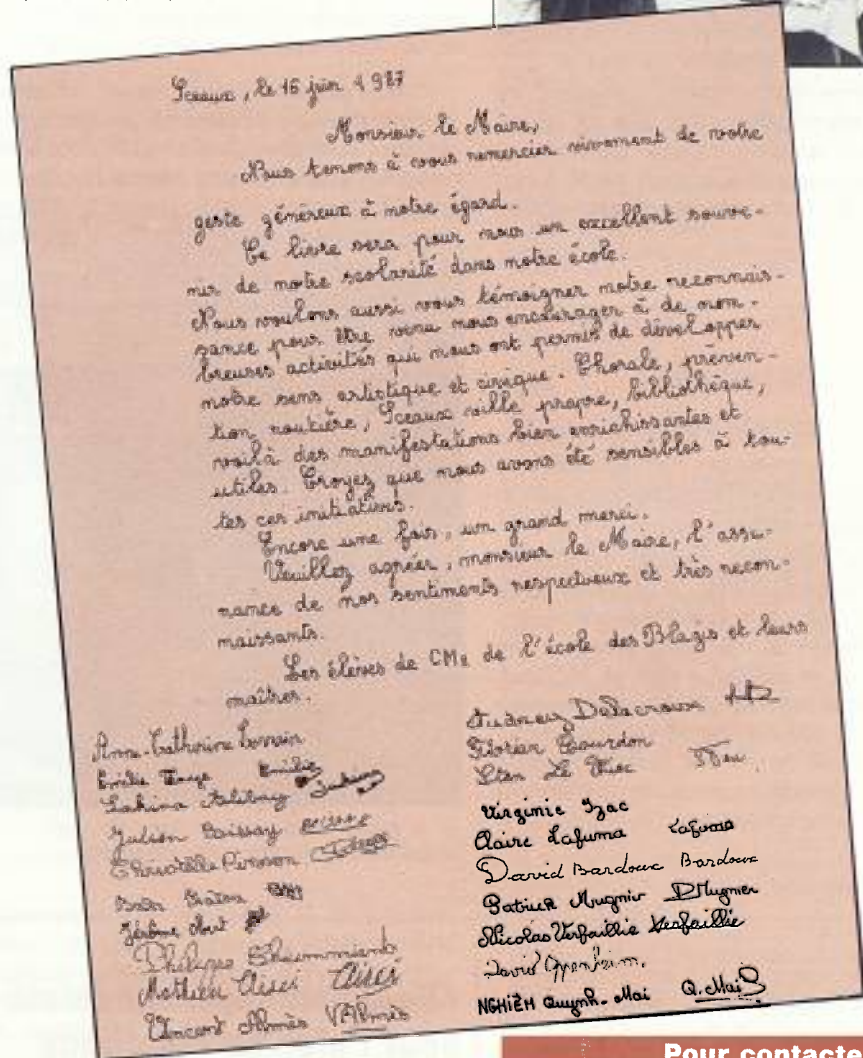 Sceaux, le 16 juin 1987
Monsieur le Maire,
Nous tenons à vous remercier vivement de votre
geste généreux à notre égard.
Ce livre sera pour nous un excellent souve-
nir de notre scolarité dans notre école.
Nous voulons aussi vous témoigner notre reconnais-
sance pour être venu nous encourager à de nom-
breuses activités qui nous ont permis de développer
notre sens artistique et civique. Chorale, préven-
tion routière, Sceaux ville propre, bibliothèque,
voilà des manifestations bien enrichissantes et
utiles. Croyez que nous avons été sensibles à tou-
tes ces initiatives.
Encore une fois, un grand merci.
Veuillez agréer, monsieur le Maire, l'assu-
rance de nos sentiments respectueux et très recon-
naissants.
Les élèves de CM2 de l'école des Blagis et leurs
maîtres.
Anne-Catherine Lorrain
Emilie Emilie
Sakina
Julien
Christelle
Jérôme
Philippe
Mathieu
Vincent Almès VAlmès
Audrey Delacroux AD
Florian Gourdon
Le
Virginie Izac
Claire Lafuma Lafuma
David Bardoux Bardoux
Patrick Mugnier PMugnier
Nicolas Verfaillie Verfaillie
David Openheim.
NGHIÊM Quynh-Mai Q.Mai
Pour contacte